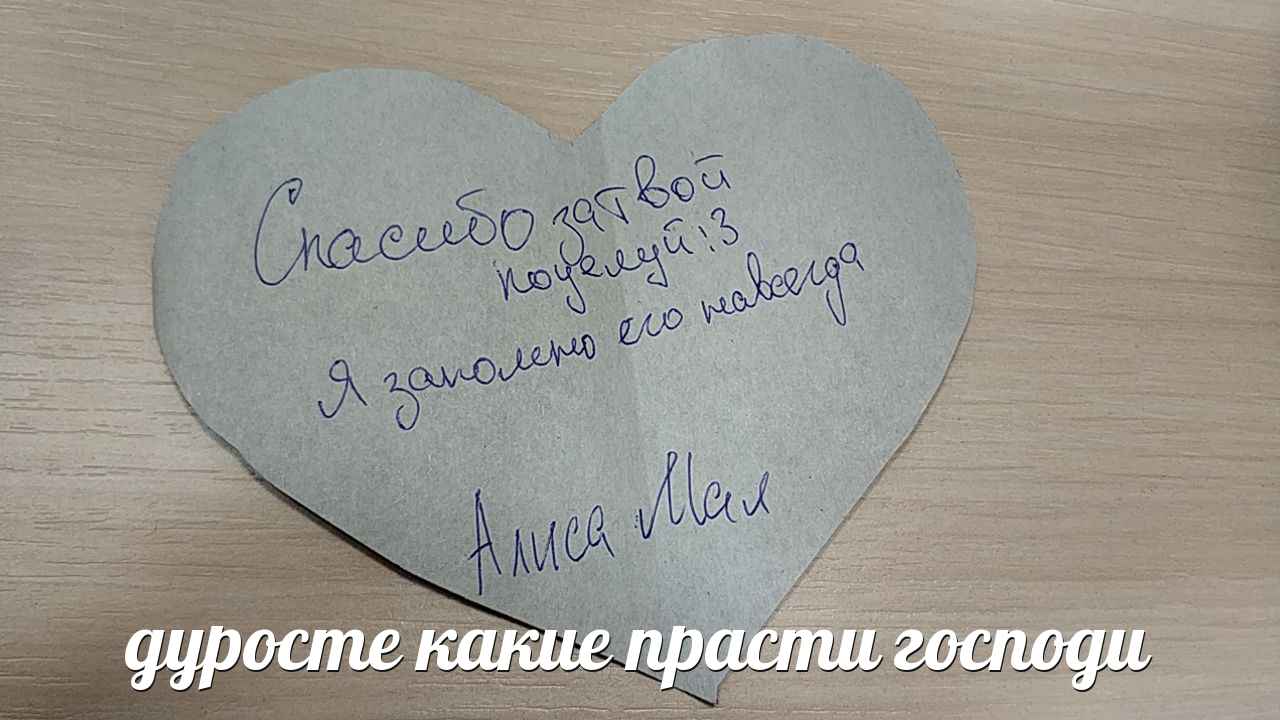 Спасибо за твой
поцелуй :3
Я запомню его навсегда
Алиса Мая
дуросте какие прасти господи